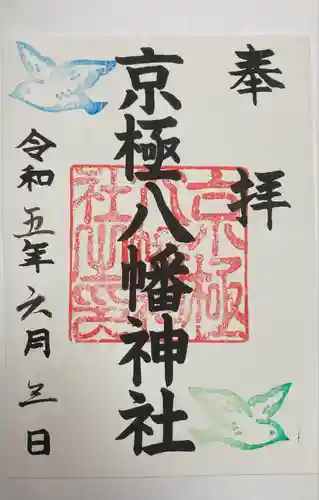 奉拝
京極八幡神社
令和五年六月三日
京極
八幡神
社之印